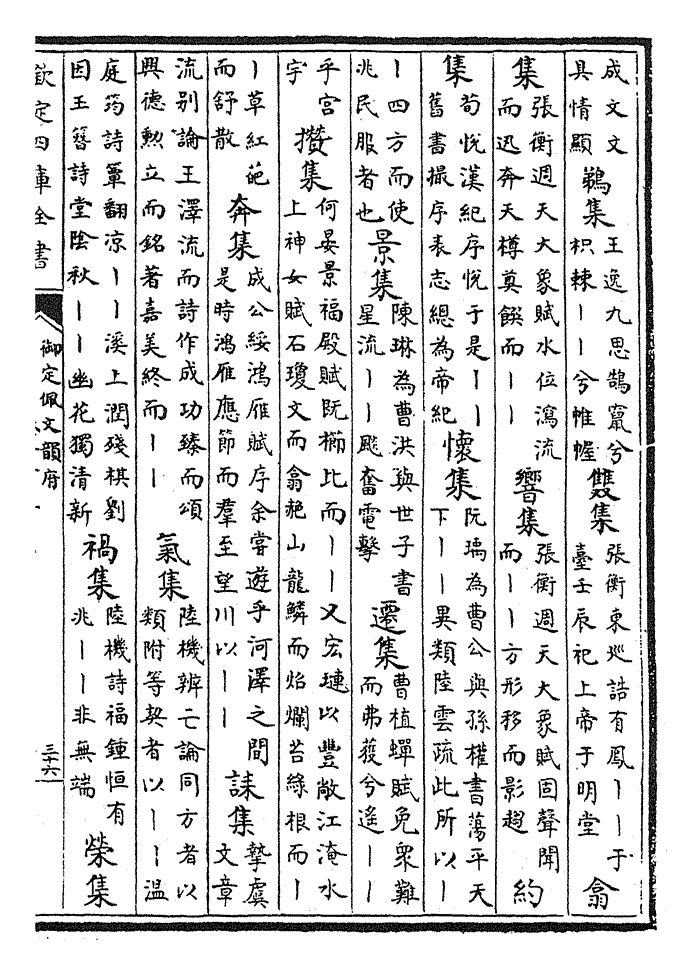 成文文
具情顯
鵜集
王逸九思鵠竄兮
枳棘丨丨兮帷幄
雙集
張衡東巡誥有鳳丨丨于
臺壬辰祀上帝于明堂
翕
集
張衡週天大象賦水位瀉流
而迅奔天樽奠饌而丨丨
響集
張衡週天大象賦固聲聞
而丨丨方形移而影趨
約
集
荀悅漢紀序悅于是丨丨
舊書撮序表志總為帝紀
懷集
阮瑀為曹公與孫權書蕩平天
下丨丨異類陸雲疏此所以丨
丨四方而使
兆民服者也
景集
陳琳為曹洪與世子書
星流丨丨飈奮電擊
遷集
曹植蟬賦免衆難
而弗獲兮遙丨丨
乎宮
宇
攢集
何晏景福殿賦既櫛比而丨丨又宏璉以豐敞江淹水
上神女賦石瓊文而翕赩山龍鱗而焰爛苔綠根而丨
丨草紅葩
而舒散
奔集
成公綏鴻雁賦序余嘗遊乎河澤之間
是時鴻雁應節而羣至望川以丨丨
誄集
摯虞
文章
流别論王澤流而詩作成功臻而頌
興德勲立而銘著嘉美終而丨丨
氣集
陸機辨亡論同方者以
類附等契者以丨丨溫
庭筠詩簟翻凉丨丨溪上潤殘棋劉
因玉簪詩堂陰秋丨丨幽花獨清新
禍集
陸機詩福鍾恒有
兆丨丨非無端
榮集
欽定四庫全書
御定佩文韻府
三十六